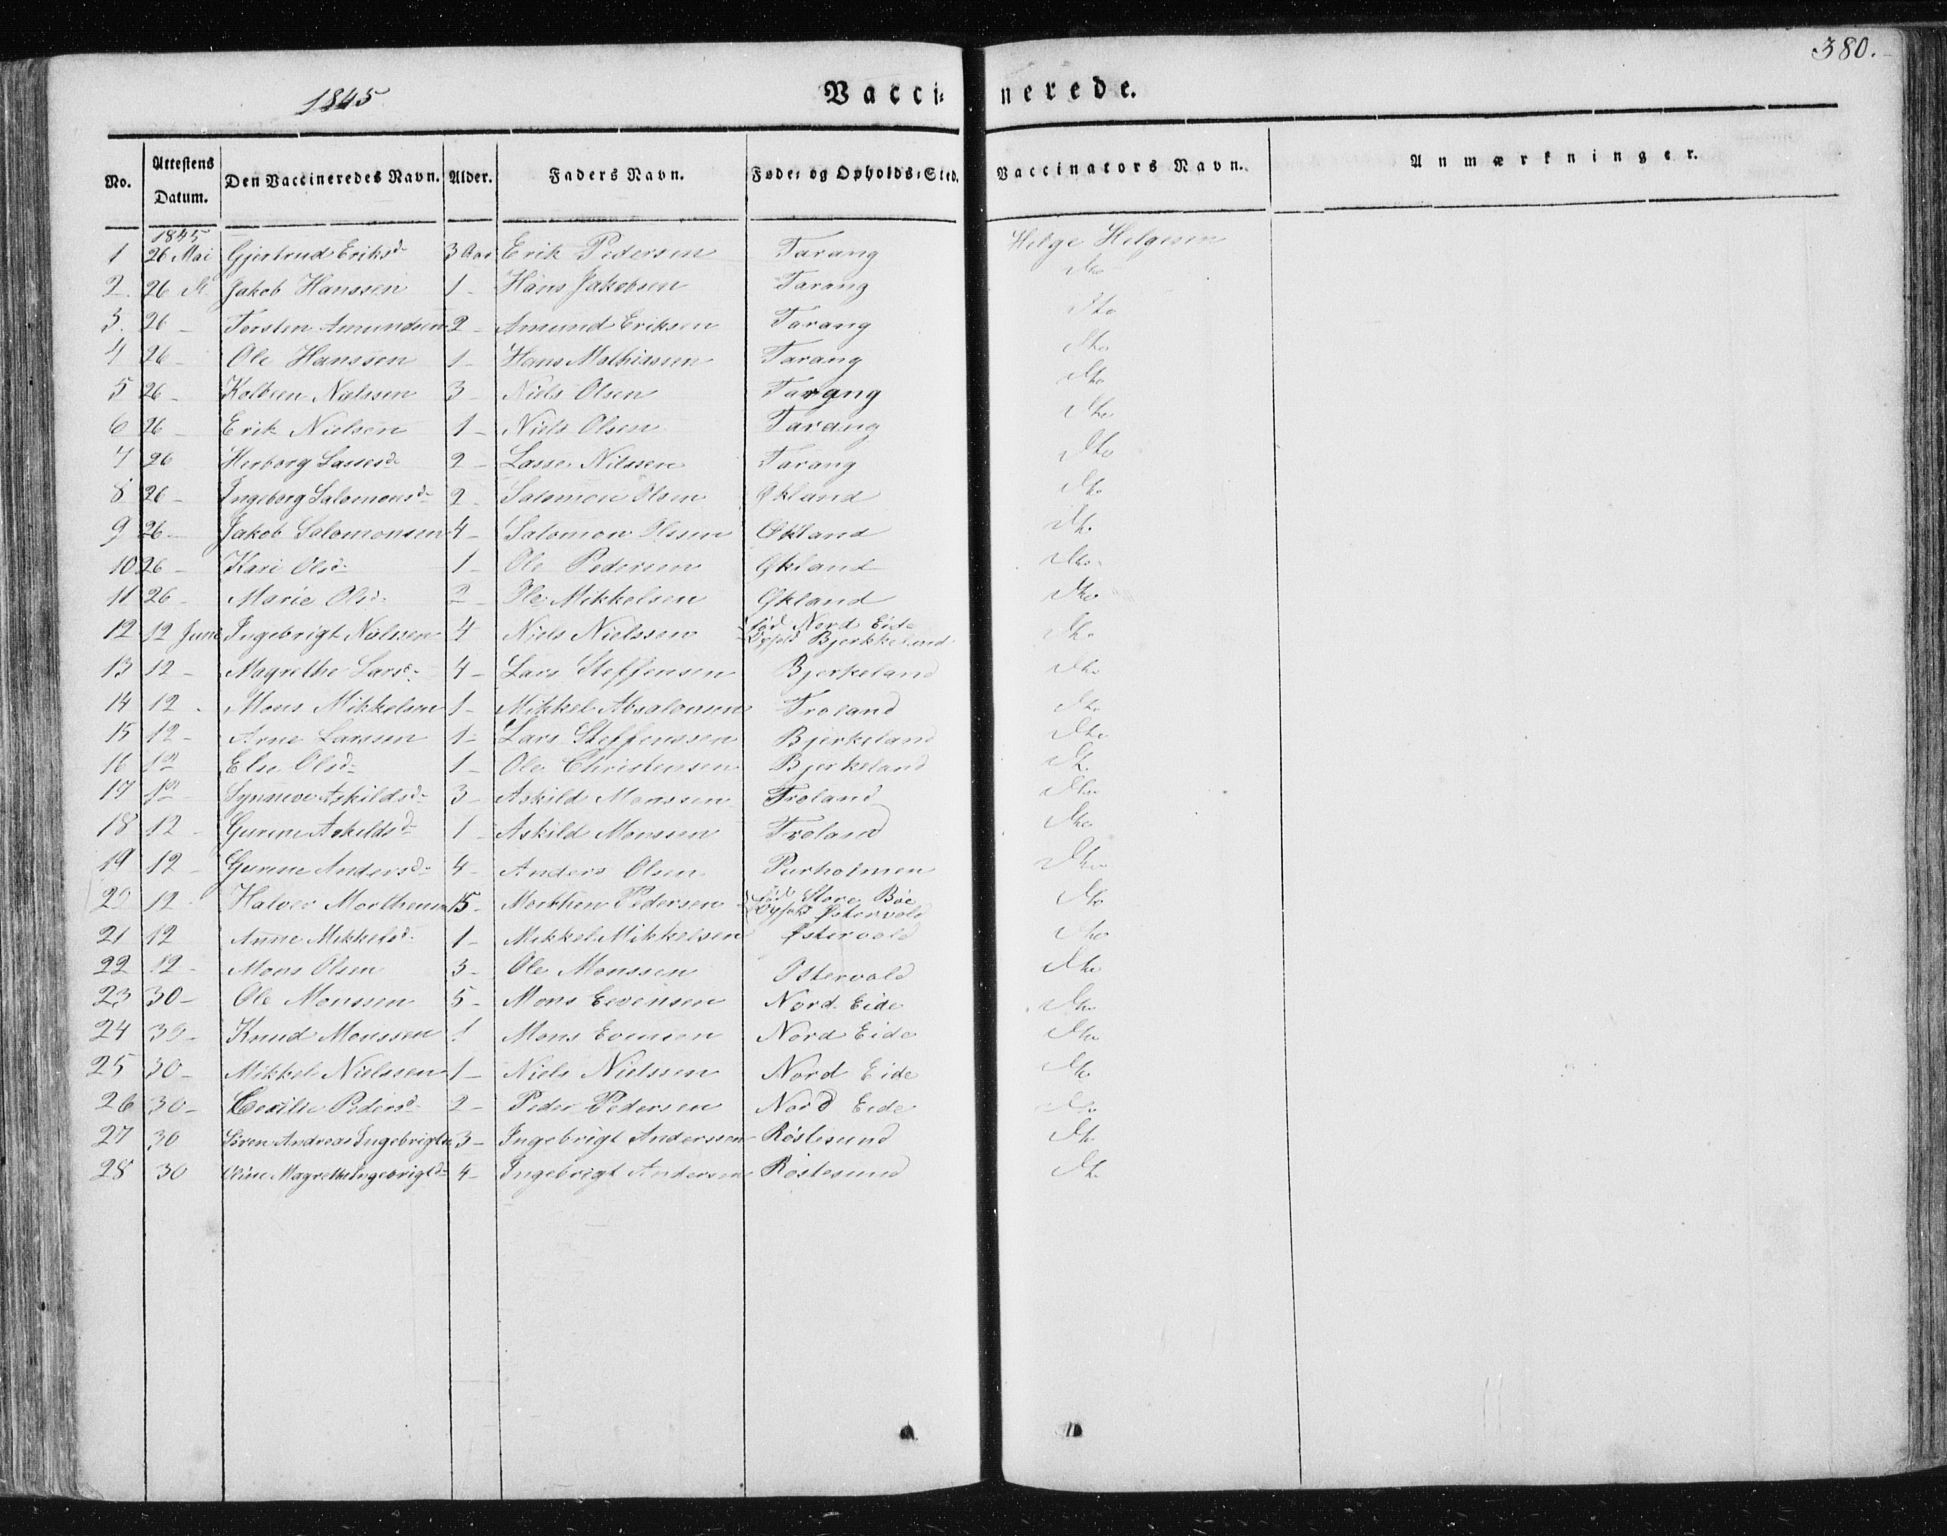 380.
1845
Vacci-nerede.
No. Attestens Datum. Den Vaccineredes Navn. Alder. Faders Navn. Føde- og Opholds-Sted. Vaccinators Navn. Anmærkninger.
1845
1 26 Mai Gjertrud Eriksd 3 Aar Erik Pedersen Tarang Helge Helgesen
2. 26 Jakob Hanssen 1 - Hans Jakobsen Tarang Do
3. 26 - Torsten Amundsen 2 - Amund Eriksen Tarang Do
4 26 - Ole Hanssen 1 - Hans Mathiassen Tarang Do
5 26 - Kolbeen Nielssen 3 - Niels Olsen Tarang Do
6 26 - Erik Nielsen 1 - Niels Olsen Tarang Do
7 26 Herborg Lassesd 2 - Lasse Nilssen Tarang Do
8 26 - Ingeborg Salomonsd 2 - Salomon Olsen Økland Do
9 26 - Jakob Salomonsen 4 - Salomon Olssen Økland Do
10 26 - Kari Olsd 1 - Ole Pedersen Økland Do
11 26 - Marie Olsd 2 - Ole Mikkelsen Økland Do
12 12 Juni Ingebrigt Nielssen 4 Niels Nielssen fød Nord Eide Do
Opfød Bjerkkeland
13 12 - Magrethe Larsd 4 - Lars Steffensen Bjerkeland Do
14 12 - Mons Mikkelsen 1 - Mikkel Absalonsen Troland Do
15 12 - Arne Larssen 1 - Lars Steffenssen Bjerkeland Do
16 12 Else Olsd 1 - Ole Christensen Bjerkeland Do
17 12 Synneve Askildsd 3 - Askild Monssen Troland Do
18 12 - Gurine Askildsd 1 - Askild Monssen Troland Do
19 12 - Gurine Andersd 4 - Anders Olsen Purholmen Do
20 12 Halvor Morthensen 15 - Morthen Pedersen fød Store Bøe Do
Opfød Østervold
21 12 Anne Mikkelsd 1 - Mikkel Mikkelsen Østervold Do
22 12 - Mons Olsen 3 - Ole Monssen Ostervold Do
23 30 - Ole Monssen 5 - Mons Evensen Nord Eide Do
24 30 - Knud Monssen 1 Mons Evensen Nord Eide Do
25 30 - Mikkel Nielssen 1 - Niels Nielssen Nord Eide Do
26 30 - Cecilie Pedersd 2 - Peder Pedersen Nord Eide Do
27 30 Søren Andreas Ingebrigts 3 - Ingebrigt Anderssen Røstesund Do
28 30 Magrethe Ingebrigtsd 4 - Ingebrigt Andersen Røstesund Do